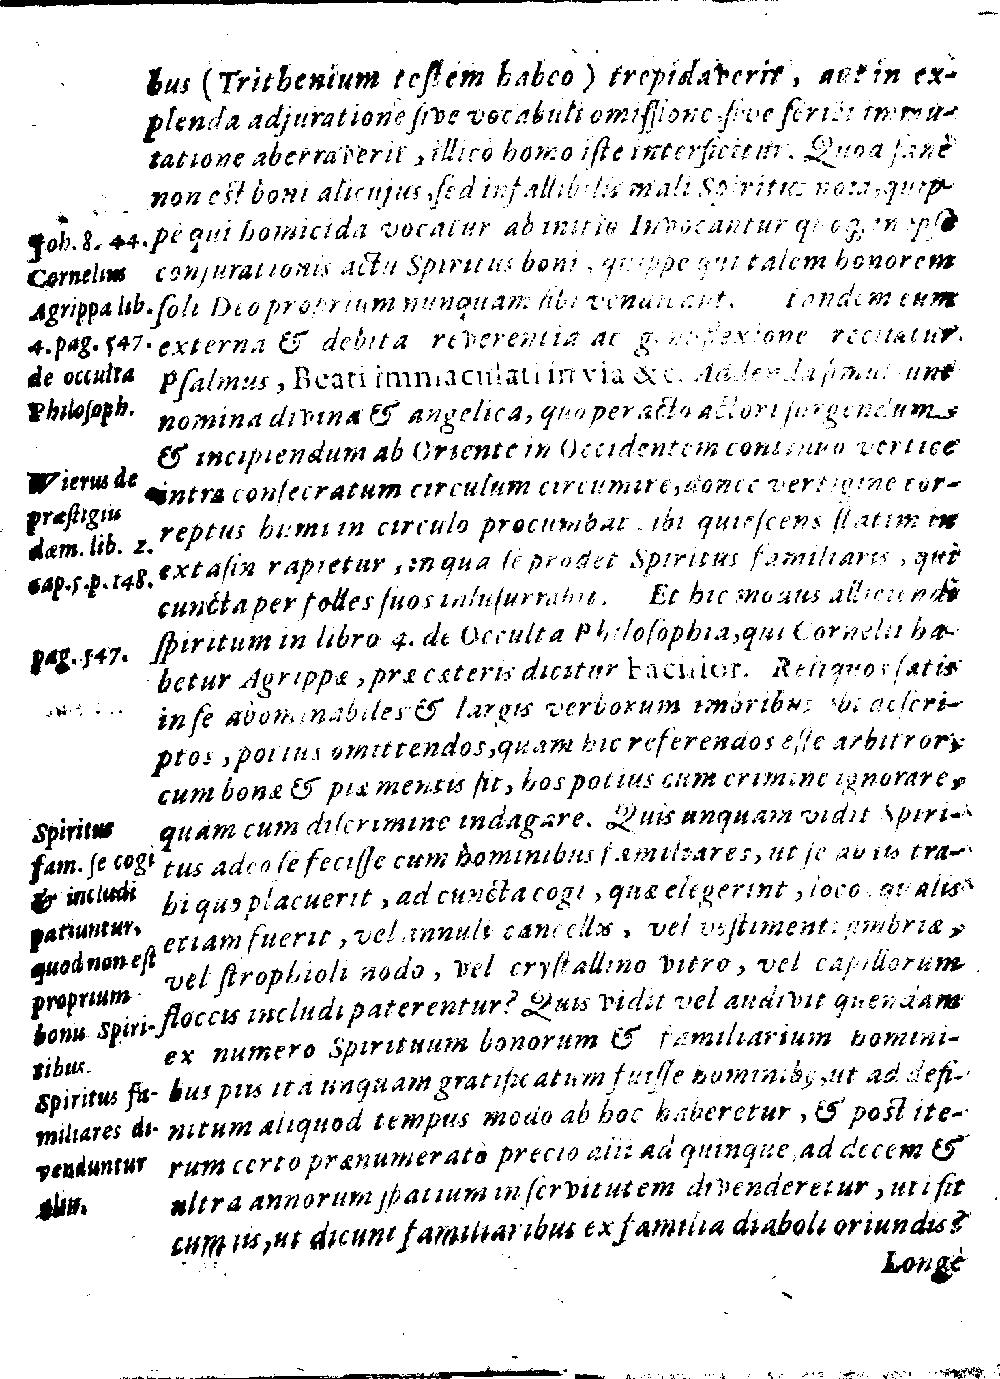 bus (Trithenium teſtem habeo) trepidaverit, aut in ex-
plenda adjuratione ſive vocabuli omiſſione ſive ſcripti immu-
tatione aberraverit, illico homo iſte interficitur. Quod ſanè
non eſt boni alicujus, ſed infallibilis mali Spiritus nota, quip-
pe qui homicida vocatur ab initio Invocantur quoq; in ipſo
conjurationis actu Spiritus boni, quippe qui talem honorem
ſoli Deo proprium nunquam ſibi vendicant. Tandem cum
externa & debita reverentia ac genuflexione recitatur.
Pſalmus, Beati immaculati in via &c. Addenda ſimul ſunt
nomina divina & angelica, quo peracto actori ſurgendum
& incipiendum ab Oriente in Occidentem continuo vertice
intra conſecratum circulum circumire, donec vertigine cor-
reptus humi in circulo procumbat ibi quieſcens ſtatim in
extaſin rapietur, in qua ſe prodet Spiritus familiaris, qui
cuncta per folles ſuos inſuſurrabit. Et hic modus alliciendi
ſpiritum in libro 4. de Occulta Philoſophia, qui Cornelii ha-
betur Agrippæ, præ cæteris dicitur Facilior. Reliquos ſatis
in ſe abominabiles & largis verborum imbribus ibi deſcri-
ptos, potius omittendos, quam hic referendos eſſe arbitror,
cum bonæ & piæ mentis ſit, hos potius cum crimine ignorare,
quam cum diſcrimine indagare. Quis unquam vidit Spiri-
tus adeo ſe feciſſe cum hominibus familiares, ut ſe ab iis tra-
hi quo placuerit, ad cuncta cogi, quæ elegerint, loco qualis
etiam fuerit, vel annuli cancellis, vel veſtimenti fimbriæ,
vel ſtrophioli nodo, vel cryſtallino vitro, vel capillorum
floccis includi paterentur? Quis vidit vel audivit quendam
ex numero Spirituum bonorum & familiarium homini-
bus piis ita unquam gratificatum fuiſſe hominibq, ut ad defi-
nitum aliquod tempus modo ab hoc haberetur, & poſt ite-
rum certo prænumerato precio alii ad quinque, ad decem &
ultra annorum ſpatium in ſervitutem divenderetur, uti fit
cum iis, ut dicunt familiaribus ex familia diaboli oriundis?
Longè
Joh. 8. 44.
Cornelius
Agrippa lib.
4. pag. 547.
de occulta
Philoſoph.
Wierus de
præſtigiis
dæm. lib. 2.
cap. 5. p. 148.
pag. 547.
Spiritus
fam. ſe cogi
& includi
patiuntur,
quod non eſt
proprium
bonis Spiri-
tibus.
Spiritus fa-
miliares di-
venduntur
aliis.